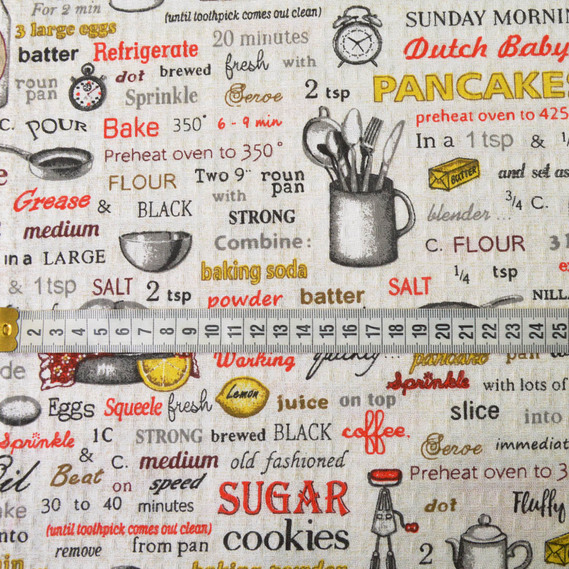 For 2 min
(until toothpick comes out clean)
SUNDAY MORNIN
3 large eggs
20 minutes
batter
Refrigerate
fresh
with
Dutch Baby
dot
brewed
roun
pan
Sprinkle
Serve
2 tsp
PANCAKES
preheat oven to 425
C.
POUR
Bake
350°
6 - 9 min
In a 1 tsp & 1/
Preheat oven to 350°
FLOUR
Two 9" roun
pan
BUTTER
and set as
Grease
&
BLACK
with
3/4 C.
blender ...
medium
STRONG
Combine:
C. FLOUR
in a LARGE
baking soda
1/4 tsp
& 1 tsp
SALT
2 tsp
powder
batter
SALT
NILL
2 3 4 5 6 7 8 9 10 11 12 13 14 15 16 17 18 19 20 21 22 23 24 25
Warking
quickly...
pancake
pan
Sprinkle
with lots of
Eggs
Squeele
fresh
Lemon
juice
on top
slice
into
Sprinkle
1C
STRONG
brewed
BLACK
coffee.
Serve
immediat
&
C.
medium
old fashioned
Beat
on
speed
Preheat oven to 3
30 to 40
minutes
SUGAR
dot
Fluffy
(until toothpick comes out clean)
remove
from pan
cookies
2
baking powder